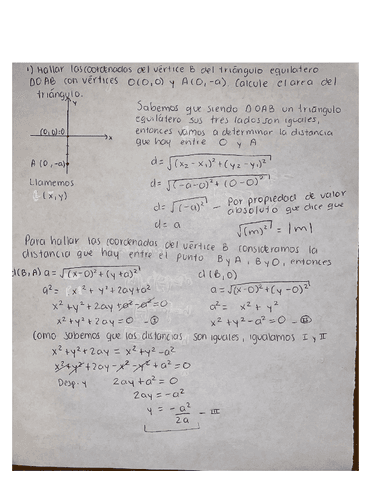 1) Hallar las coordenadas del vértice B del triángulo equilatero
DOAB con vértices O(0,0) y A(0,-a) Calcule el area del
triángulo.
y
(0,0):0
x
A (0,-a)
Llamemos
(x,y)
Sabemos que siendo DOAB un triángulo
equilátero sus tres lados son iguales,
entonces vamos a determinar la distancia
que hay entre O y A
d=√(x₂-x₁)²+(y₂-y₁)²
d=√(-a-0)²+(0-0)²
d=√(-a)² — Por propiedad de valor
absoluto que dice que
d= a
√(m)² = |m|
Para hallar las coordenadas del vértice B consideramos la
distancia que hay entre el punto B y A, B y O, entonces
d(B,A) a=√(x-0)²+(y+a)²
a²= x²+y²+2ay+a²
x²+y²+2ay+a²-a²=0
x²+y²+2ay=0 - I
d(B,O)
a=√(x-0)²+(y-0)²
a²= x²+y²
x²+y²-a²=0 - II
Como sabemos que las distancias son iguales, igualamos I y II
x²+y²+2ay = x²+y²-a²
x²+y²+2ay-x²-y²+a²=0
Desp. y 2ay+a²=0
2ay=-a²
y = -a²/2a - III